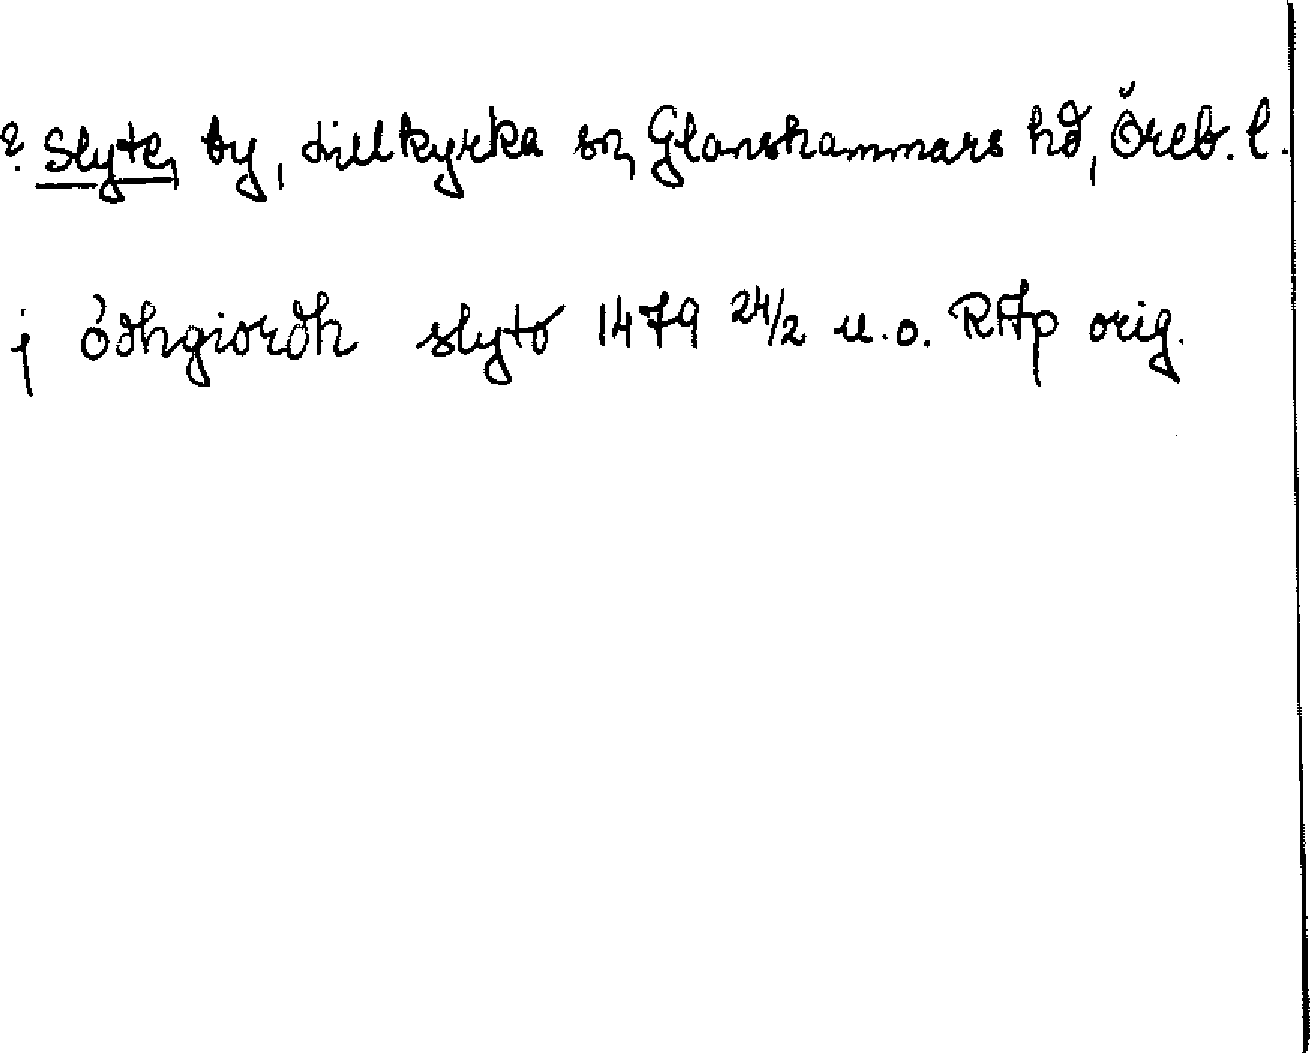 ? Slyte, by, Lillkyrka sn, Glanshammars hd, Öreb. l.
j ödhgiordh slyto 1479 24/2 u.o. RAp orig.